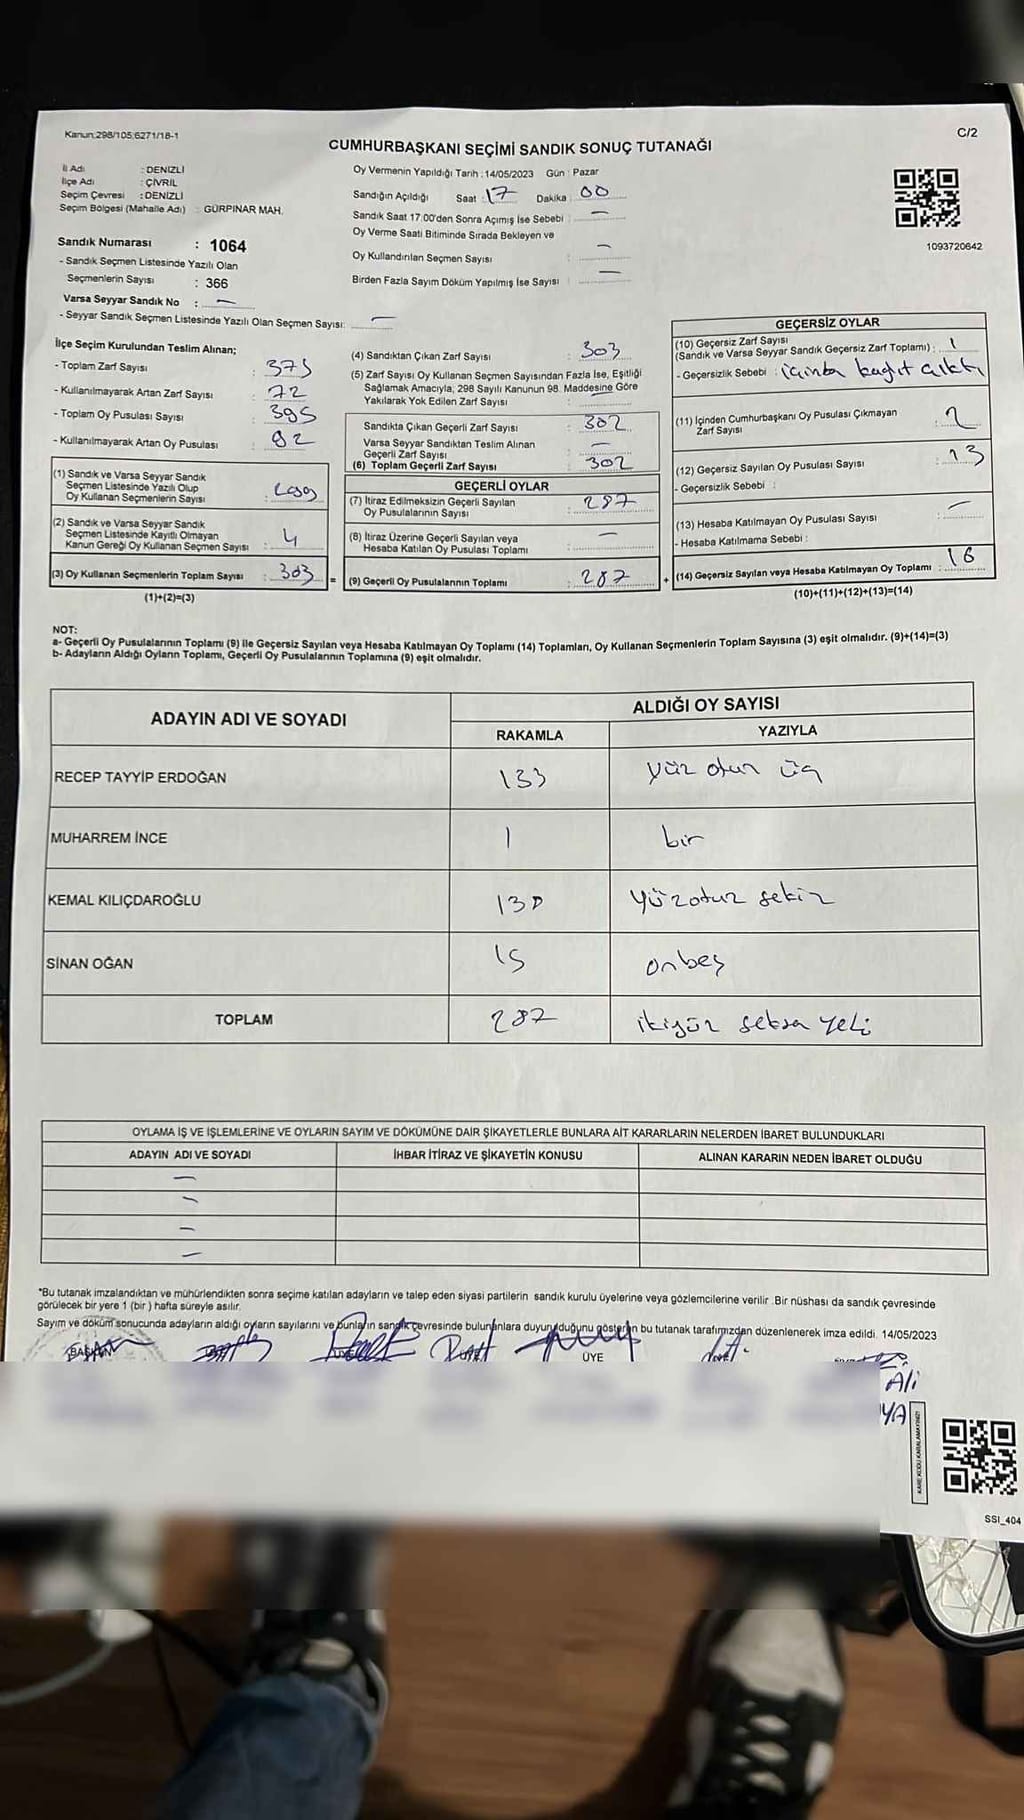 Kanun:298/105;6271/18-1
C/2
CUMHURBAŞKANI SEÇİMİ SANDIK SONUÇ TUTANAĞI
İl Adı : DENİZLİ
İlçe Adı : ÇİVRİL
Seçim Çevresi : DENİZLİ
Seçim Bölgesi (Mahalle Adı) : GÜRPINAR MAH.
Sandık Numarası : 1064
- Sandık Seçmen Listesinde Yazılı Olan
Seçmenlerin Sayısı : 366
Varsa Seyyar Sandık No : —
- Seyyar Sandık Seçmen Listesinde Yazılı Olan Seçmen Sayısı: —
Oy Vermenin Yapıldığı Tarih : 14/05/2023 Gün : Pazar
Sandığın Açıldığı Saat : 17 Dakika : 00
Sandık Saat 17:00'den Sonra Açımış İse Sebebi : —
Oy Verme Saati Bitiminde Sırada Bekleyen ve
Oy Kullandırılan Seçmen Sayısı : —
Birden Fazla Sayım Döküm Yapılmış İse Sayısı : —
1093720642
İlçe Seçim Kurulundan Teslim Alınan;
- Toplam Zarf Sayısı : 375
- Kullanılmayarak Artan Zarf Sayısı : 72
- Toplam Oy Pusulası Sayısı : 395
- Kullanılmayarak Artan Oy Pusulası : 92
(1) Sandık ve Varsa Seyyar Sandık
Seçmen Listesinde Yazılı Olup
Oy Kullanan Seçmenlerin Sayısı :
(2) Sandık ve Varsa Seyyar Sandık
Seçmen Listesinde Kayıtlı Olmayan
Kanun Gereği Oy Kullanan Seçmen Sayısı : 4
(3) Oy Kullanan Seçmenlerin Toplam Sayısı : 303 =
(1)+(2)=(3)
(4) Sandıktan Çıkan Zarf Sayısı : 303
(5) Zarf Sayısı Oy Kullanan Seçmen Sayısından Fazla İse, Eşitliği
Sağlamak Amacıyla, 298 Sayılı Kanunun 98. Maddesine Göre
Yakılarak Yok Edilen Zarf Sayısı :
Sandıkta Çıkan Geçerli Zarf Sayısı : 302
Varsa Seyyar Sandıktan Teslim Alınan
Geçerli Zarf Sayısı : —
(6) Toplam Geçerli Zarf Sayısı : 302
GEÇERLİ OYLAR
(7) İtiraz Edilmeksizin Geçerli Sayılan
Oy Pusulalarının Sayısı : 287
(8) İtiraz Üzerine Geçerli Sayılan veya
Hesaba Katılan Oy Pusulası Toplamı : —
(9) Geçerli Oy Pusulalarının Toplamı : 287 +
GEÇERSİZ OYLAR
(10) Geçersiz Zarf Sayısı
(Sandık ve Varsa Seyyar Sandık Geçersiz Zarf Toplamı) : 1
- Geçersizlik Sebebi : içinba kağıt çıktı
(11) İçinden Cumhurbaşkanı Oy Pusulası Çıkmayan
Zarf Sayısı : 2
(12) Geçersiz Sayılan Oy Pusulası Sayısı : 13
- Geçersizlik Sebebi :
(13) Hesaba Katılmayan Oy Pusulası Sayısı : —
- Hesaba Katılmama Sebebi :
(14) Geçersiz Sayılan veya Hesaba Katılmayan Oy Toplamı : 16
(10)+(11)+(12)+(13)=(14)
NOT:
a- Geçerli Oy Pusulalarının Toplamı (9) ile Geçersiz Sayılan veya Hesaba Katılmayan Oy Toplamı (14) Toplamları, Oy Kullanan Seçmenlerin Toplam Sayısına (3) eşit olmalıdır. (9)+(14)=(3)
b- Adayların Aldığı Oyların Toplamı, Geçerli Oy Pusulalarının Toplamına (9) eşit olmalıdır.
ADAYIN ADI VE SOYADI
ALDIĞI OY SAYISI
RAKAMLA YAZIYLA
RECEP TAYYİP ERDOĞAN 133 yüz otuz üç
MUHARREM İNCE 1 bir
KEMAL KILIÇDAROĞLU 138 yüzotuz sekiz
SİNAN OĞAN 15 onbeş
TOPLAM 287 ikiyüz seksa yedi
OYLAMA İŞ VE İŞLEMLERİNE VE OYLARIN SAYIM VE DÖKÜMÜNE DAİR ŞİKAYETLERLE BUNLARA AİT KARARLARIN NELERDEN İBARET BULUNDUKLARI
ADAYIN ADI VE SOYADI İHBAR İTİRAZ VE ŞİKAYETİN KONUSU ALINAN KARARIN NEDEN İBARET OLDUĞU
—
—
—
—
"Bu tutanak imzalandıktan ve mühürlendikten sonra seçime katılan adayların ve talep eden siyasi partilerin sandık kurulu üyelerine veya gözlemcilerine verilir .Bir nüshası da sandık çevresinde
görülecek bir yere 1 (bir ) hafta süreyle asılır.
Sayım ve döküm sonucunda adayların aldığı oyların sayılarını ve bunların sandık çevresinde bulunanlara duyurulduğunu gösteren bu tutanak tarafımızdan düzenlenerek imza edildi. 14/05/2023
BAŞKAN
ÜYE
Ali
YA
KARE KODU KARALAMAYINIZ!
SSI_404